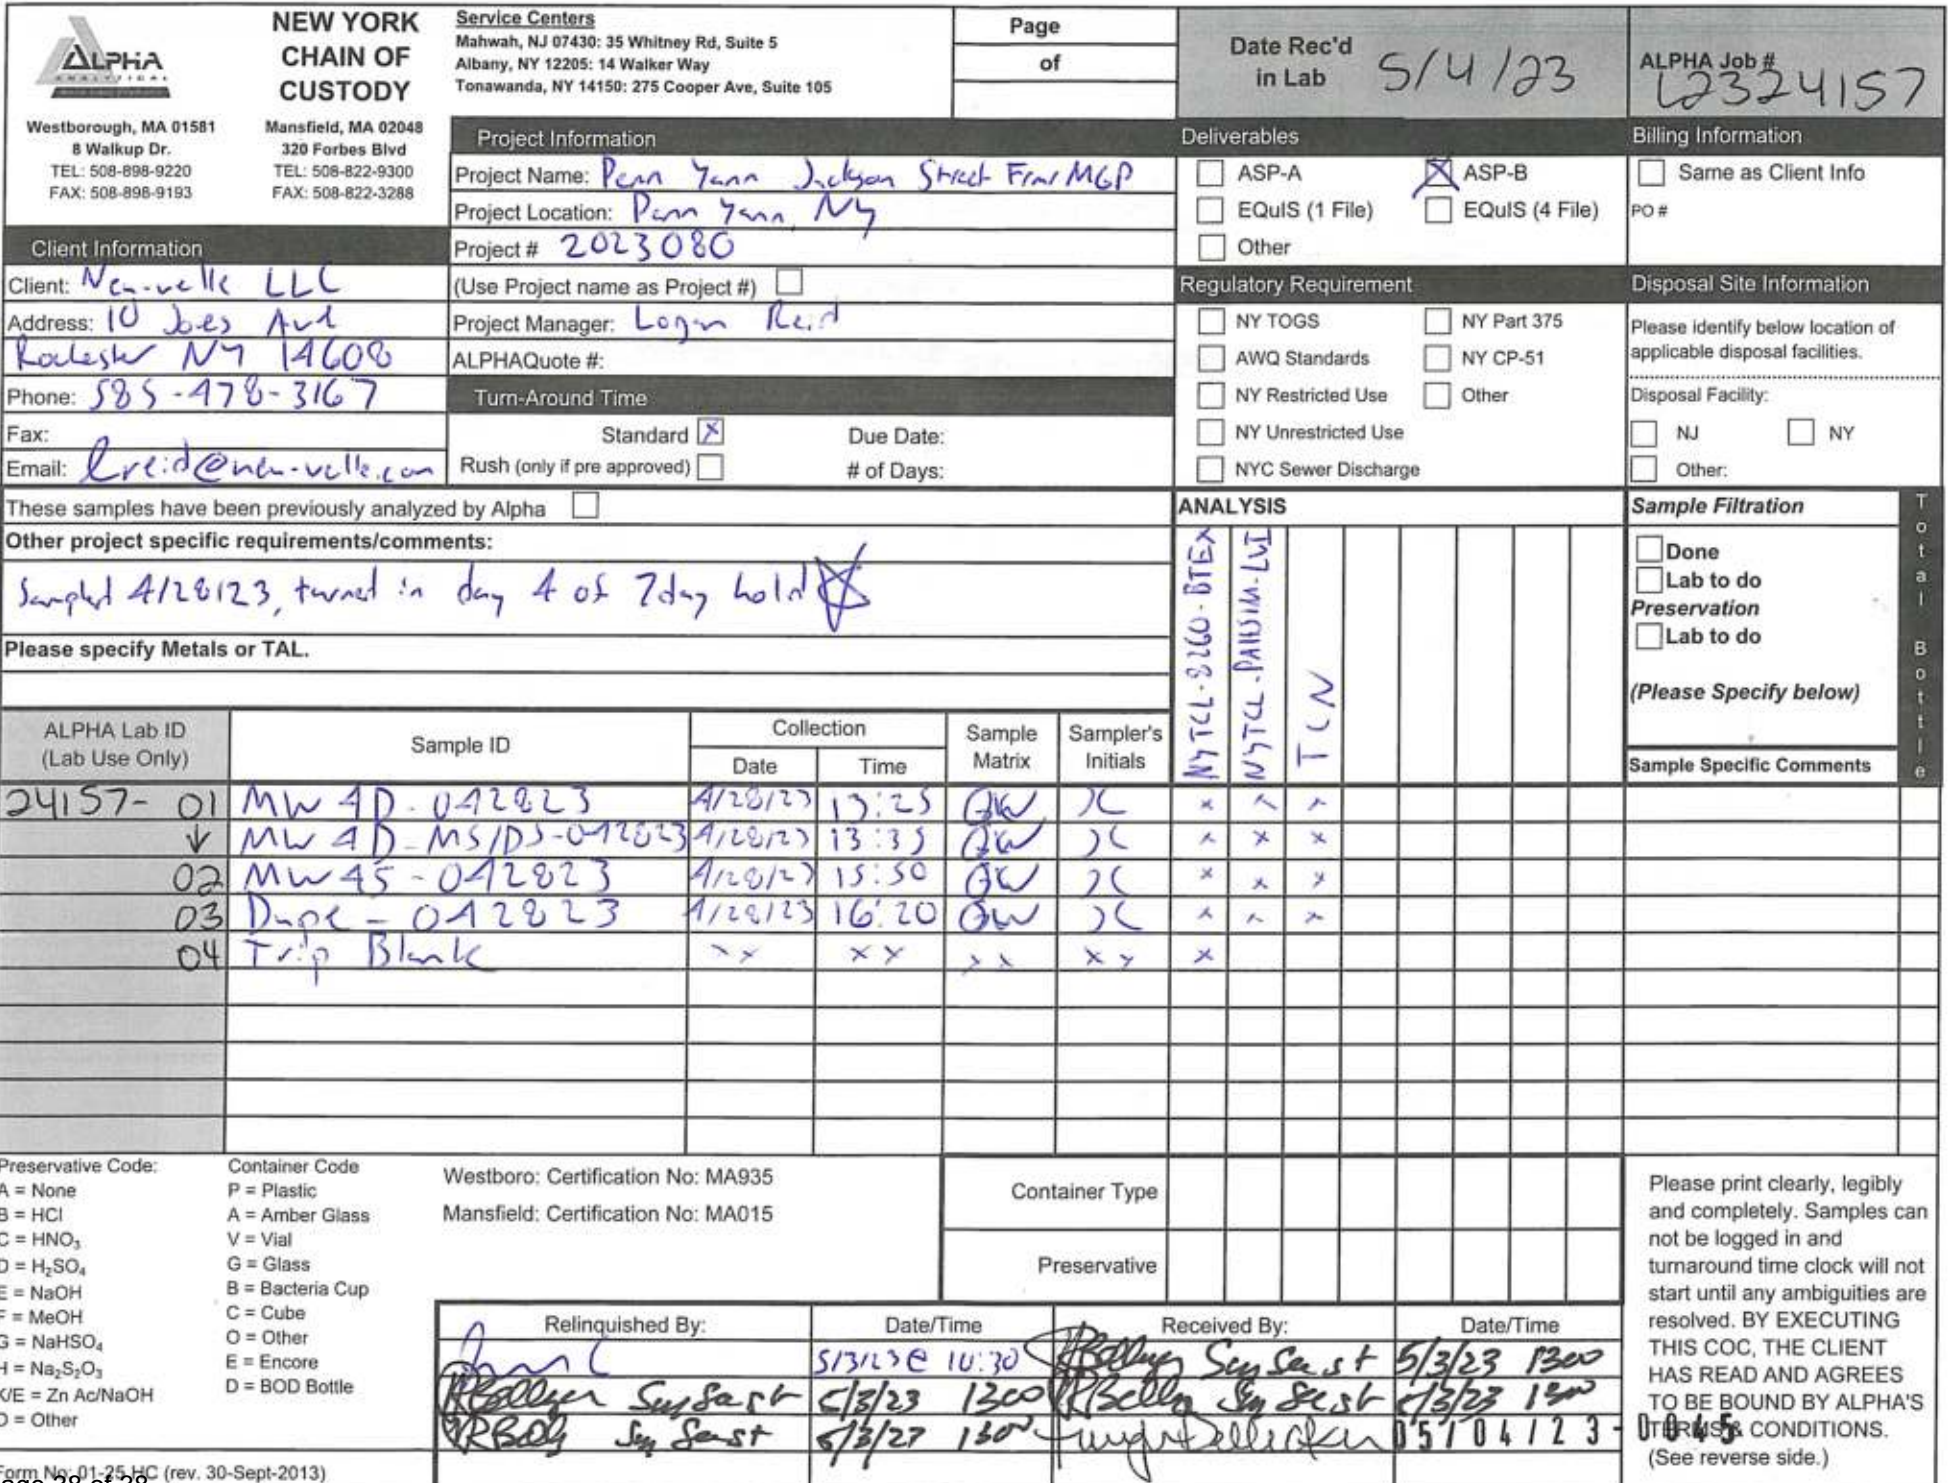 ALPHA
ANALYTICAL
NEW YORK
CHAIN OF
CUSTODY
Westborough, MA 01581
8 Walkup Dr.
TEL: 508-898-9220
FAX: 508-898-9193
Mansfield, MA 02048
320 Forbes Blvd
TEL: 508-822-9300
FAX: 508-822-3288
Service Centers
Mahwah, NJ 07430: 35 Whitney Rd, Suite 5
Albany, NY 12205: 14 Walker Way
Tonawanda, NY 14150: 275 Cooper Ave, Suite 105
Page
of
Date Rec'd
in Lab 5/4/23
ALPHA Job #
L2324157
Project Information
Project Name: Penn Yann Jackson Street Frmr MGP
Project Location: Penn Yann, NY
Project # 2023080
(Use Project name as Project #)
Project Manager: Logan Reid
ALPHAQuote #:
Turn-Around Time
Standard X Due Date:
Rush (only if pre approved) # of Days:
Deliverables
ASP-A X ASP-B
EQuIS (1 File) EQuIS (4 File)
Other
Billing Information
Same as Client Info
PO #
Client Information
Client: Neu-velle LLC
Address: 10 Jones Ave
Rochester NY 14608
Phone: 585-478-3167
Fax:
Email: lreid@neu-velle.com
Regulatory Requirement
NY TOGS NY Part 375
AWQ Standards NY CP-51
NY Restricted Use Other
NY Unrestricted Use
NYC Sewer Discharge
Disposal Site Information
Please identify below location of
applicable disposal facilities.
Disposal Facility:
NJ NY
Other:
These samples have been previously analyzed by Alpha
Other project specific requirements/comments:
Sampled 4/28/23, turned in day 4 of 7day hold
Please specify Metals or TAL.
ANALYSIS
NYTCL-8260-BTEX
NYTCL-PAHSIM-LVI
TCN
Sample Filtration
Done
Lab to do
Preservation
Lab to do
(Please Specify below)
Total Bottle
ALPHA Lab ID
(Lab Use Only)
Sample ID
Collection
Date Time
Sample
Matrix
Sampler's
Initials
Sample Specific Comments
24157- 01 MW 4D-042823 4/28/23 13:25 GW x x x
MW 4D-MS/DS-042823 4/28/23 13:35 GW x x x
02 MW4S-042823 4/28/23 15:50 GW x x x
03 Dupe-042823 4/28/23 16:20 GW x x x
04 Trip Blank xx xx xx xx x
Preservative Code:
A = None
B = HCl
C = HNO3
D = H2SO4
E = NaOH
F = MeOH
G = NaHSO4
H = Na2S2O3
K/E = Zn Ac/NaOH
O = Other
Container Code
P = Plastic
A = Amber Glass
V = Vial
G = Glass
B = Bacteria Cup
C = Cube
O = Other
E = Encore
D = BOD Bottle
Westboro: Certification No: MA935
Mansfield: Certification No: MA015
Container Type
Preservative
Relinquished By: Date/Time Received By: Date/Time
5/3/23 @ 10:30 5/3/23 1300
5/3/23 1300 5/3/23 1300
05/04/23-0045
Please print clearly, legibly
and completely. Samples can
not be logged in and
turnaround time clock will not
start until any ambiguities are
resolved. BY EXECUTING
THIS COC, THE CLIENT
HAS READ AND AGREES
TO BE BOUND BY ALPHA'S
TERMS & CONDITIONS.
(See reverse side.)
Form No: 01-25 HC (rev. 30-Sept-2013)